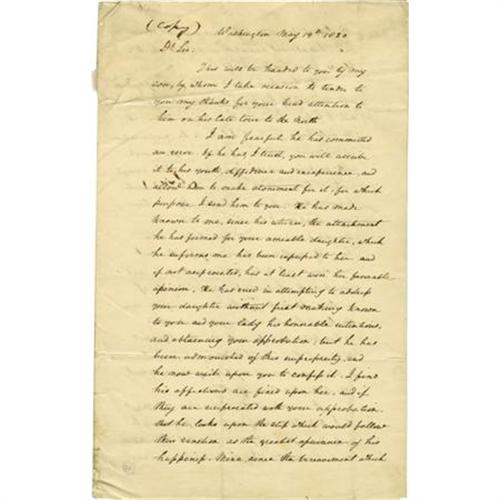 (Copy) Washington May 19th 1820
Dr Sir.
This will be handed to you by my
son, by whom I take occasion to tender to
you my thanks for your kind attention to
him on his late tour to the North
I am fearful he has committed
an error. If he has, I trust, you will ascribe
it to his youth, diffidence and inexperience, and
allow him to make atonement for it; for which
purpose I send him to you. He has made
known to me, since his return, the attachment
he has formed for your amiable daughter, which
he informs me has been expressed to her and
if not reciprocated, has at least won her favorable
opinion. He has erred in attempting to address
your daughter without first making known
to you and your lady his honorable intentions,
and obtaining your approbation; but he has
been admonished of this impropriety, and
he now waits upon you to confess it. I find
his affections are fixed upon her, and if
they are reciprocated with your approbation.
that he looks upon the step which would follow
this sanction as the greatest assurance of his
happiness. Mine, since the bereavement which